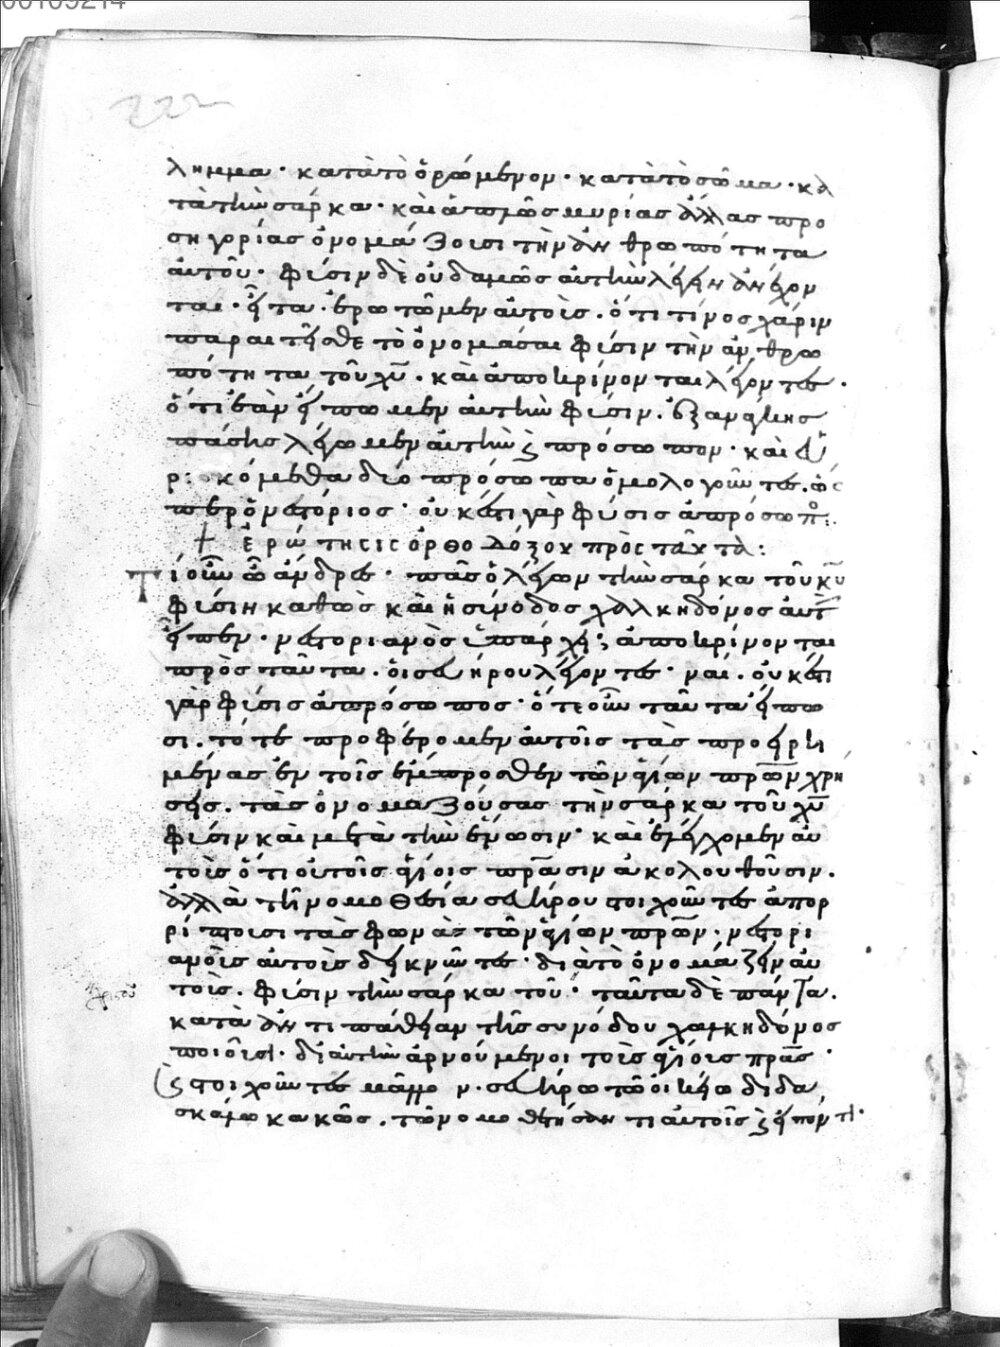 00109214
222
λημμα · κατὰ τὸ ὁρώμενον · κατὰ τὸ σῶμα · κα
τὰ τὴν σάρκα · καὶ ἁπλῶς μυρίας ἄλλας προ
σηγορίας ὀνομάζουσι τὴν ἀνθρωπότητα
αὐτοῦ · φύσιν δὲ οὐδαμῶς αὐτὴν λέγειν ἀνέχον
ται · εἶτα · ἐρωτῶμεν αὐτοῖς · ὅτι τίνος χάριν
παραιτεῖσθε τὸ ὀνομάσαι φύσιν τὴν ἀνθρω
πότητα τοῦ χῦ · καὶ ἀποκρίνονται λέγοντες ·
ὅτι ἐὰν εἴπωμεν αὐτὴν φύσιν · ἐξ ἀνάγκης
πάσης λέγωμεν αὐτὴν ϛ πρόσωπον · καὶ εὑ
ρισκόμεθα δύο πρόσωπα ὁμολογοῦντες · ὥς
περ ὁ νεστόριος · οὐκ ἔστι γὰρ φύσις ἀπρόσωπο:
+ ἐρώτησις ὀρθοδόξου πρὸς ταῦτα:
Τί οὖν ὦ ἄνδρες · πᾶς ὁ λέγων τὴν σάρκα τοῦ κῦ
φύσιν καθὼς καὶ ἡ σύνοδος χαλκηδόνος αὐτὴν
εἶπεν · νεστοριανὸς ὑπάρχει; ἀποκρίνονται
πρὸς ταῦτα · οἱ σευήρου λέγοντες · ναί · οὐκ ἔστι
γὰρ φύσις ἀπρόσωπος · ὅτε οὖν ταῦτα εἴπω
σι · τότε προφέρομεν αὐτοῖς τὰς προειρη
μένας ἐν τοῖς ἔμπροσθεν τῶν ἁγίων πρων χρή
σεις · τὰς ὀνομαζούσας τὴν σάρκα τοῦ χῦ
φύσιν καὶ μετὰ τὴν ἕνωσιν · καὶ ἐλέγχομεν αὐ
τοῖς ὅτι οὐ τοῖς ἁγίοις πράσιν ἀκολουθοῦσιν ·
ἀλλὰ τῇ νομοθεσία σευήρου στοιχοῦντες ἀπορ
ρίπτουσι τὰς φωνὰς τῶν ἁγίων πρων · νεστορι
ανοῖς αὐτοῖς δεικνῦντες · διὰ τὸ ὀνομάζειν αὐ
τοῖς · φύσιν τὴν σάρκα τοῦ · ταῦτα δὲ πάντα ·
κατὰ ἀντιπάθειαν τῆς συνόδου χαλκηδόνος
ποιοῦσι · δι' αὐτὴν ἀρνούμενοι τοῖς ἁγίοις πρας ·
ϛ στοιχοῦντες μᾶλλον · σευήρω τῶ οἰκείω διδα
σκάλω κακῶς · τῶ νομοθετήσαντι αὐτοῖς ϛ εἰπόντι ·